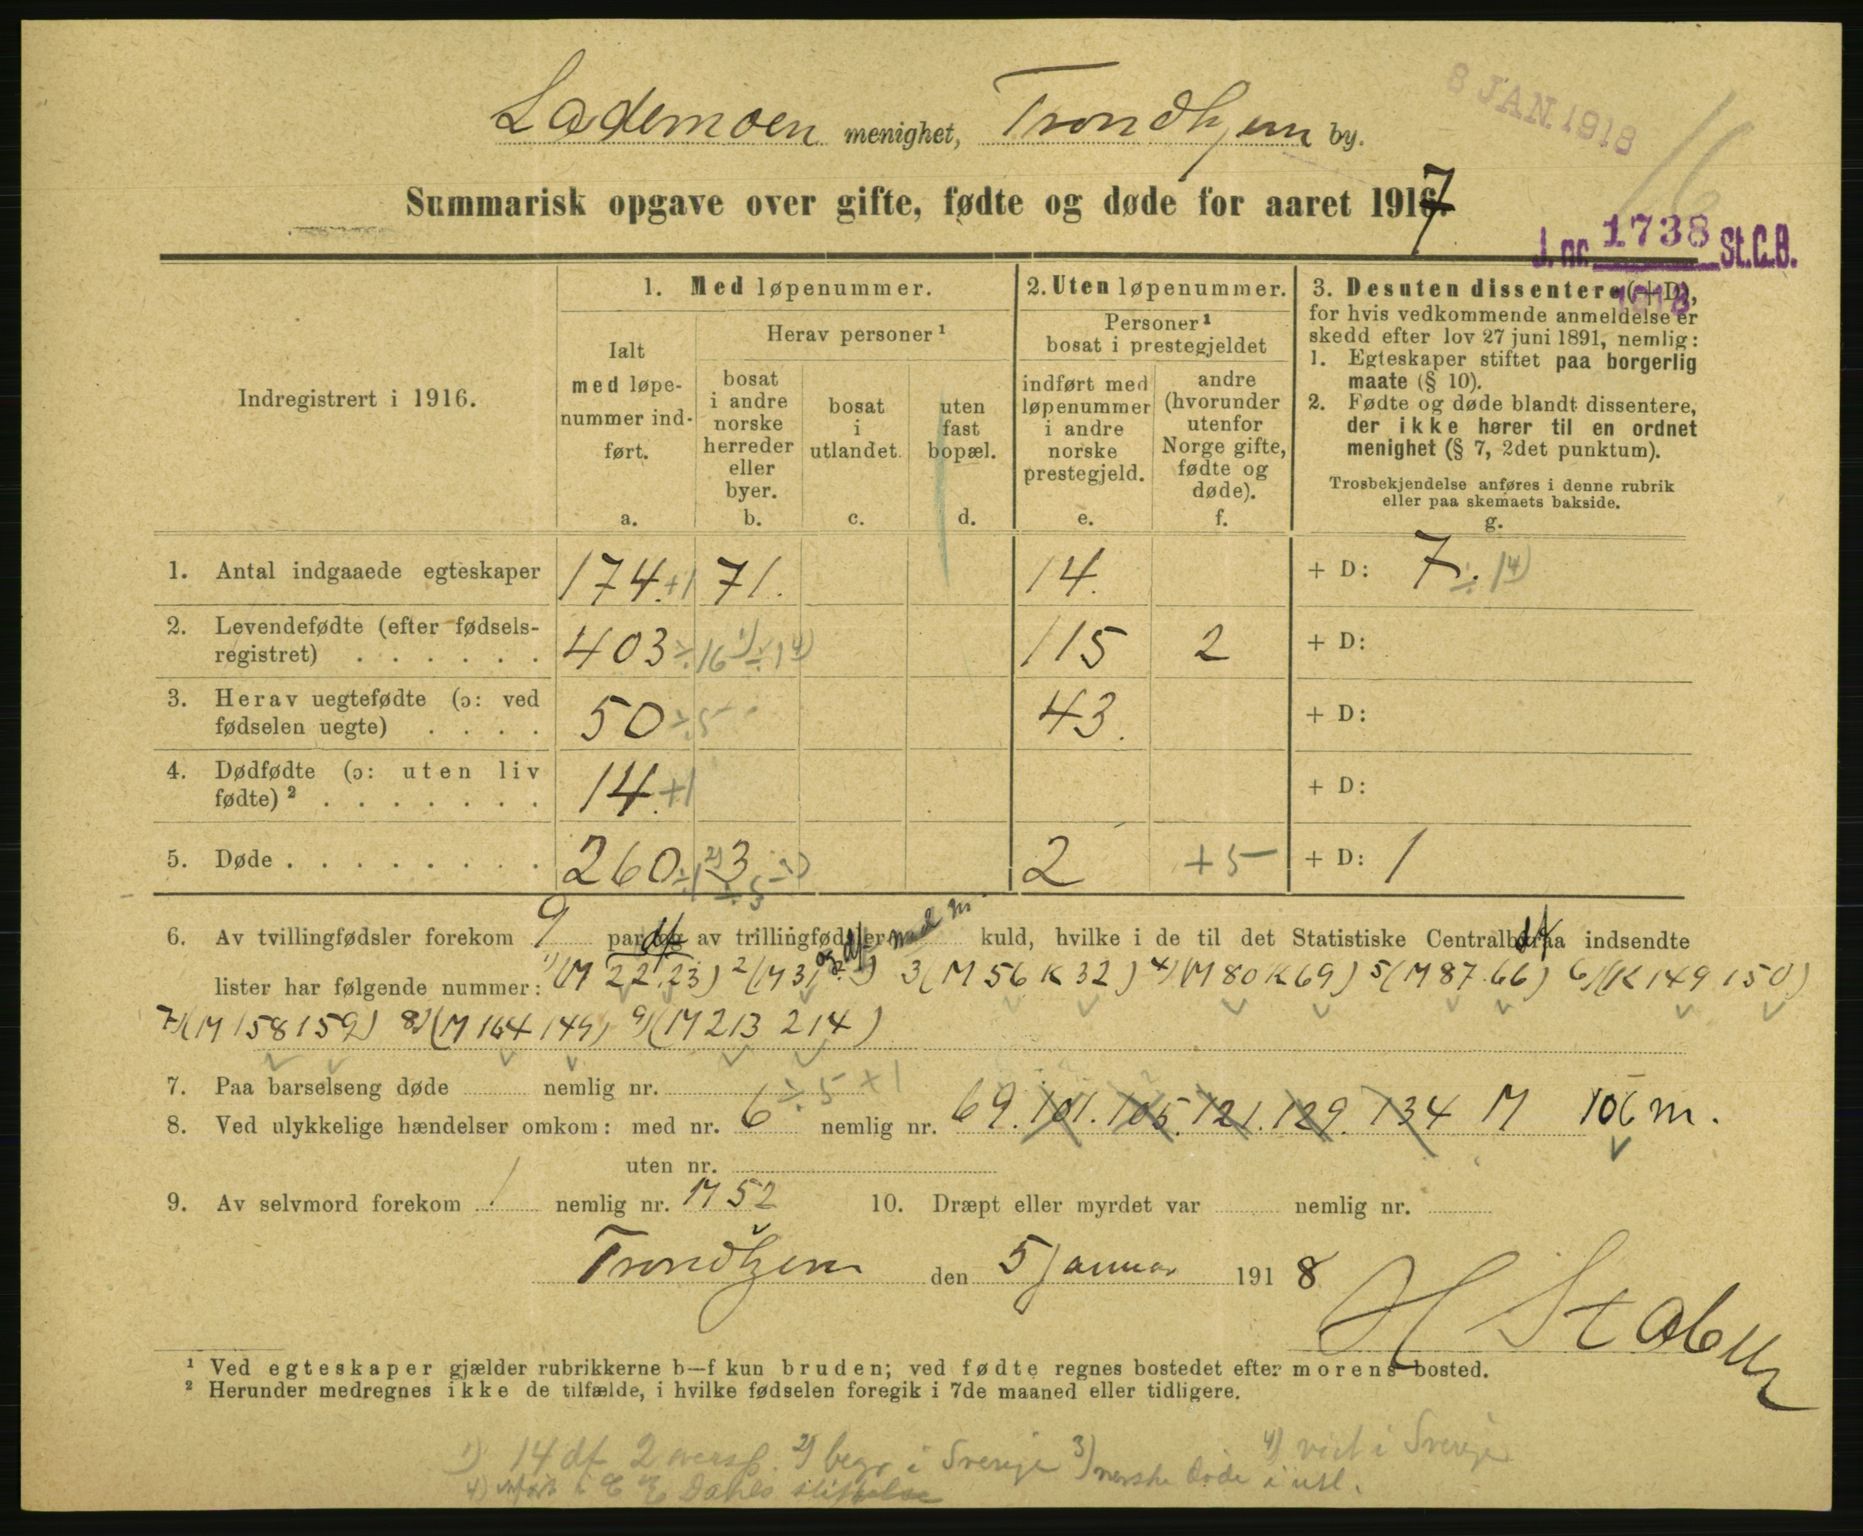 8 JAN. 1918
16
Lademoen menighet, Trondhjem by.
Summarisk opgave over gifte, fødte og døde for aaret 1916. 7
J. nr. 1738 St.C.B.
1918
Indregistrert i 1916.
1. Med løpenummer.
Ialt med løpe-nummer ind-ført.
a.
Herav personer ¹
bosat i andre norske herreder eller byer.
b.
bosat i utlandet.
c.
uten fast bopæl.
d.
2. Uten løpenummer.
Personer ¹ bosat i prestegjeldet
indført med løpenummer i andre norske prestegjeld.
e.
andre (hvorunder utenfor Norge gifte, fødte og døde).
f.
3. Desuten dissentere (+ D),
for hvis vedkommende anmeldelse er
skedd efter lov 27 juni 1891, nemlig:
1. Egteskaper stiftet paa borgerlig
maate (§ 10).
2. Fødte og døde blandt dissentere,
der ikke hører til en ordnet
menighet (§ 7, 2det punktum).
Trosbekjendelse anføres i denne rubrik
eller paa skemaets bakside.
g.
1. Antal indgaaede egteskaper 174. +1 71. 14. + D: 7. ÷ 1 4)
2. Levendefødte (efter fødsels-
registret) . . . . . . 403 ÷ 16 1) ÷ 1 4) 115 2 + D:
3. Herav uegtefødte (ɔ: ved
fødselen uegte) . . . . 50 ÷ 5 43. + D:
4. Dødfødte (ɔ: uten liv
fødte) ² . . . . . . . 14. +1 + D:
5. Døde . . . . . . . . 260 ÷ 1 2) 3 2 + 5 + D: 1
6. Av tvillingfødsler forekom 9 par og av trillingfødsler kuld, hvilke i de til det Statistiske Centralbyraa indsendte
lister har følgende nummer: 1) (M 22. 23) 2 (M 31 ) 3 (M 56 K 32) 4) (M 80 K 69) 5 (M 87. 66) 6) (K 149 150)
7) (M 158 159) 8) (M 164 149) 9) (M 213 214)
7. Paa barselseng døde nemlig nr.
÷ 5 + 1
8. Ved ulykkelige hændelser omkom: med nr. 6 nemlig nr. 69. 101. 105. 121. 129. 134 M 106 m.
uten nr.
9. Av selvmord forekom 1 nemlig nr. M 52 10. Dræpt eller myrdet var nemlig nr.
Trondhjem den 5 Januar 1918
H Støbell
¹ Ved egteskaper gjælder rubrikkerne b—f kun bruden; ved fødte regnes bostedet efter morens bosted.
² Herunder medregnes ikke de tilfælde, i hvilke fødselen foregik i 7de maaned eller tidligere.
1) 14 df 2 oversp. 2) begr i Sverige 3) norske døde i utl. 4) viet i Sverige
4) i E. E. Dahls stiftelse